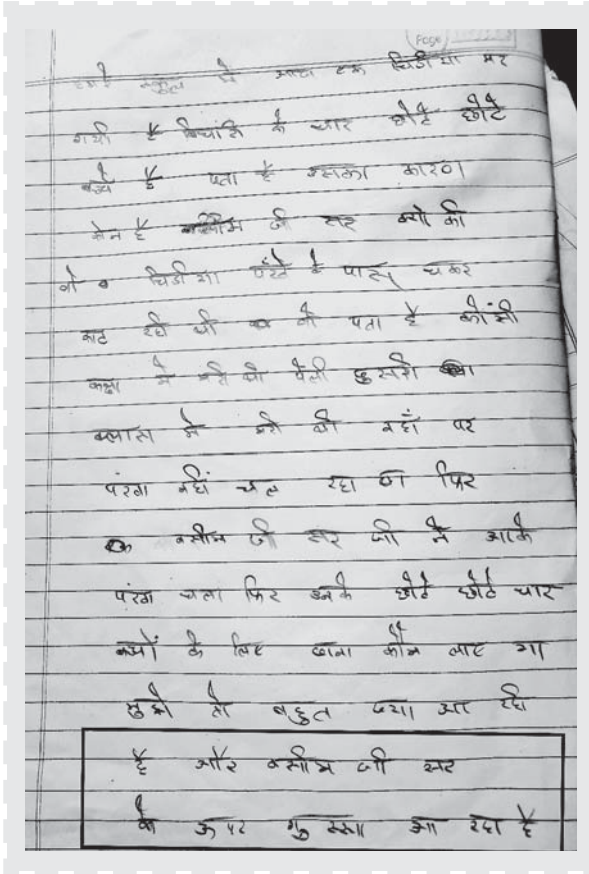 Page
हमारे स्कूल में आज एक चिडीया मर
गयी है बिचारि के चार छोटे छोटे
बच्चे है पता है इसका कारण
कोन है वसीम जी सर क्यो की
वो चिडीया पंखे के पास चकर
काट रही थी वो पता है कोंसी
कक्षा मे मरी थी पेली दुसरी
क्लास मे मरी थी वहाँ पर
पंखा नहीं चल रहा था फिर
वसीम जी सर जी ने आके
पंखा चला फिर उनके छोटे छोटे चार
बच्चों के लिए खाना कौन लाए गा
मुझे तो बहुत दया आ रही
है और वसीम जी सर
के ऊपर गुस्सा आ रहा है